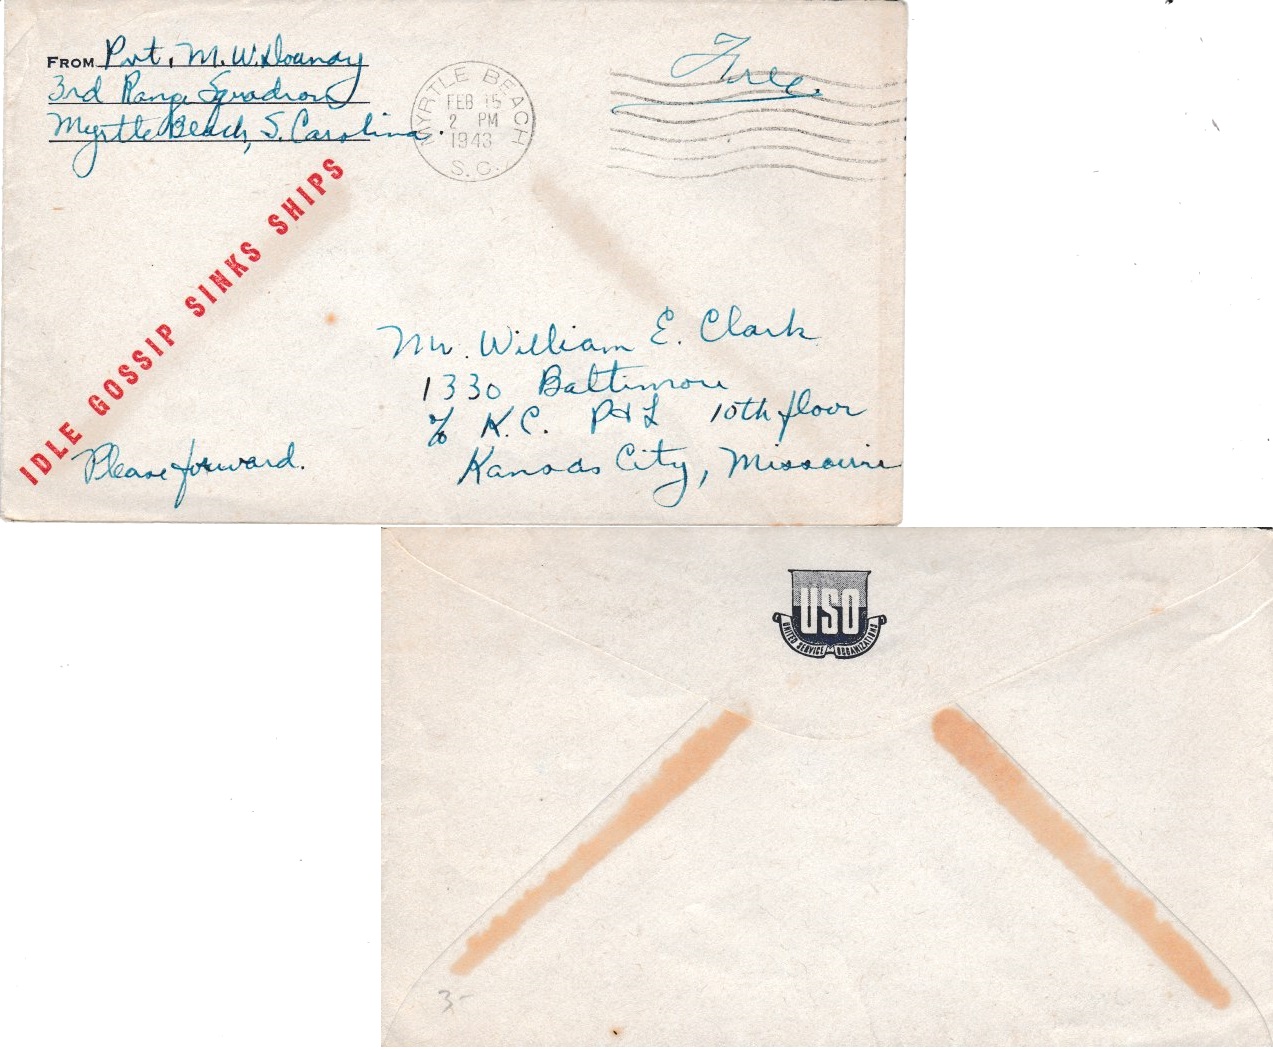 FROM Pvt. M. W.
3rd Range Squadron
Myrtle Beach, S. Carolina.
MYRTLE BEACH
FEB 15
2 PM
1943
S. C.
Free.
IDLE GOSSIP SINKS SHIPS
Mr. William E. Clark
1330 Baltimore
℅ K.C. P&L 10th floor
Kansas City, Missouri
Please forward.
USO
UNITED SERVICE ORGANIZATIONS
3-